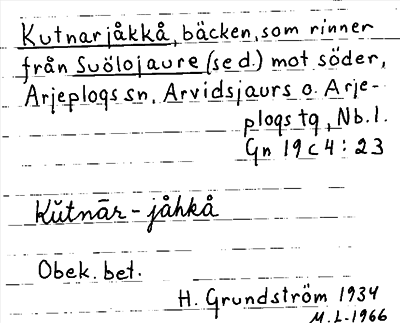 Kutnarjåkkå, bäcken, som rinner
från Suölojaure (se d.) mot söder,
Arjeplogs sn, Arvidsjaurs o. Arje-
plogs tg, Nb. l.
Gn 19 c 4 : 23
Kŭtnār - jåhkå
Obek. bet.
H. Grundström 1934
M. L-1966